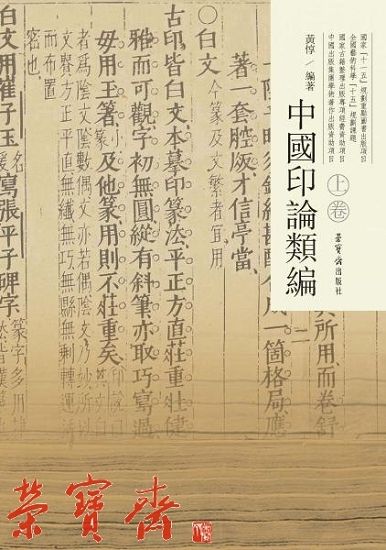 國家「十一五」規劃重點圖書出版項目
全國藝術科學「十五」規劃課題
國家古籍整理出版專項經費資助項目
中國出版集團學術著作出版資助項目
黃惇/編著
中國印論類編
上卷
榮寶齋出版社
其所用而緩
一個格局應
著一套腔扳才信亭當
○白文 今篆及文繁者宜用
古印皆白文本摹印篆法平正方直莊重壯健
雅而可觀字初無圓縱有斜筆亦取巧寫過
毋用玉箸篆及他篆用則不莊重矣
者為陰文陰數偶文亦若偶陰文乃妙
文譽方正平直無纖無巧無懸無剩
而布置
密也
白文用崔子玉寫張平子碑字 篆字多用
榮寶齋